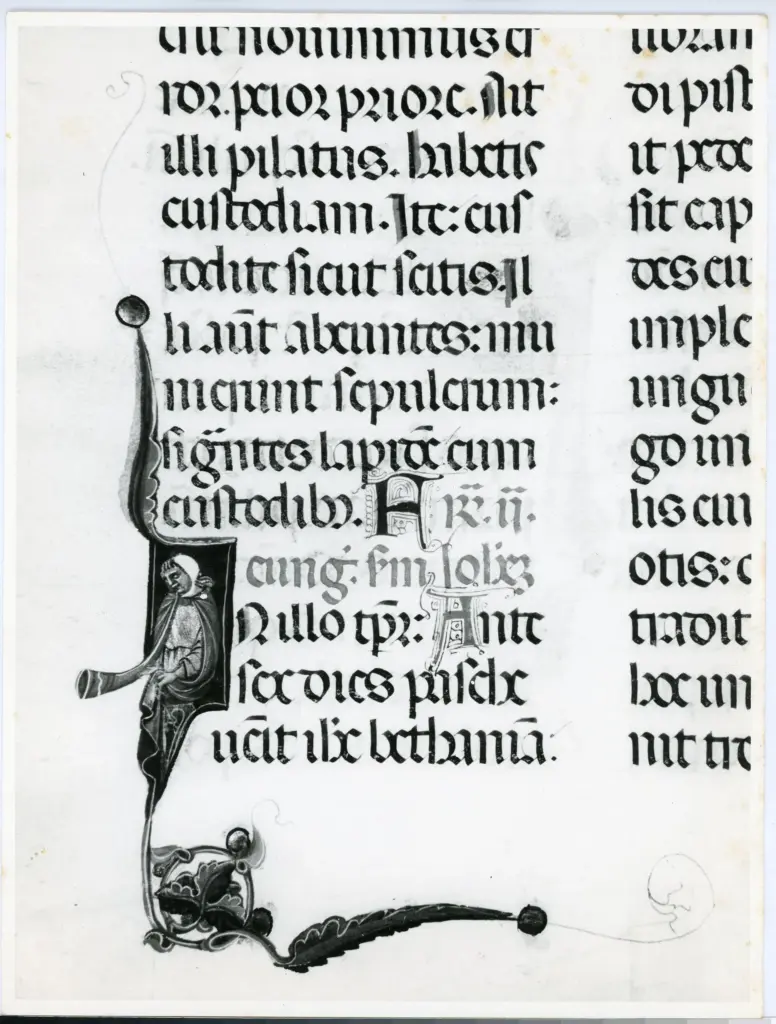 nouissimus er
ror. peior priore. Ait
illi pilatus. habetis
cuſtodiam. Ite: cuſ
todite ſicut ſcitis. Il
li aūt abeuntes: mu
nierunt ſepulcrum:
ſigñtes lapidē cum
cuſtodibꝫ. F
euang. ſm Iohēꝫ
N illo tp̄r: Ante
ſex dies paſche
uēit ihc bethaniā:
libram
di piſt
it pede
ſit cap
des eiu
imple
ungu
go un
lis eiu
otis:
tradit
hoc un
nit tre